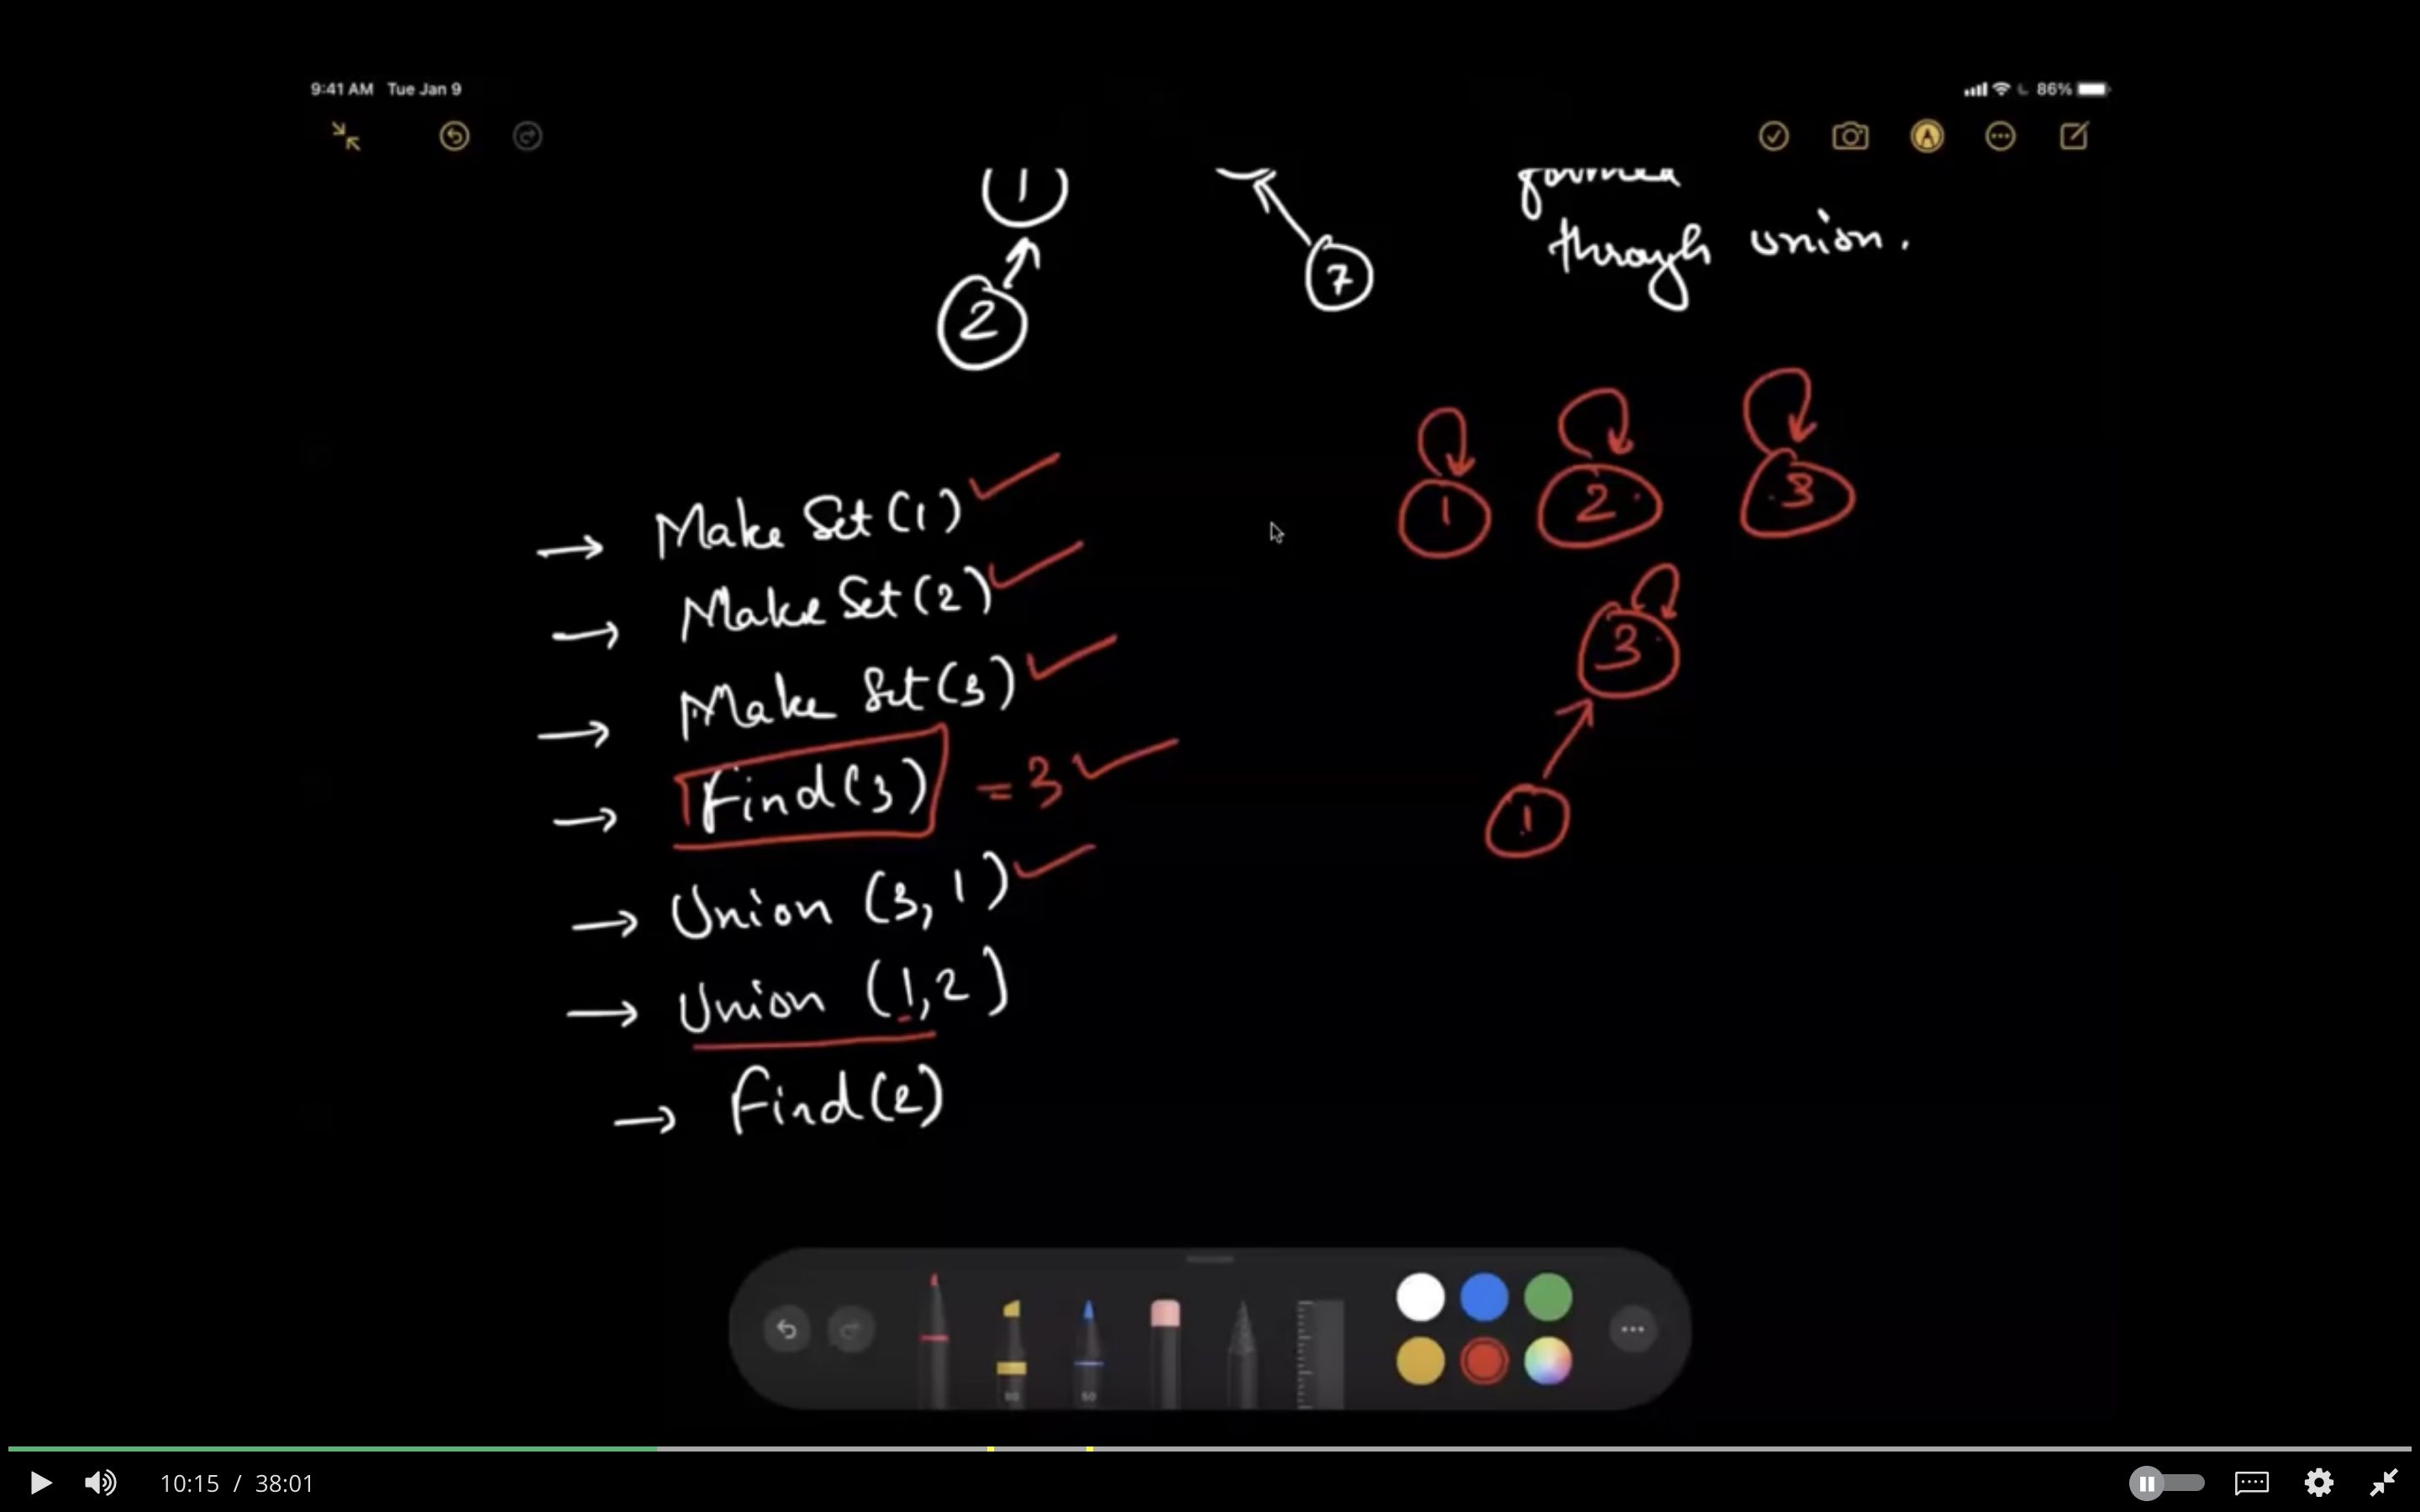 9:41 AM Tue Jan 9
86%
1
7
2
through union.
1 2 3
Make Set(1)
Make Set(2)
Make Set(3)
3
Find(3) = 3
1
Union (3,1)
Union (1,2)
Find(2)
80
50
10:15 / 38:01